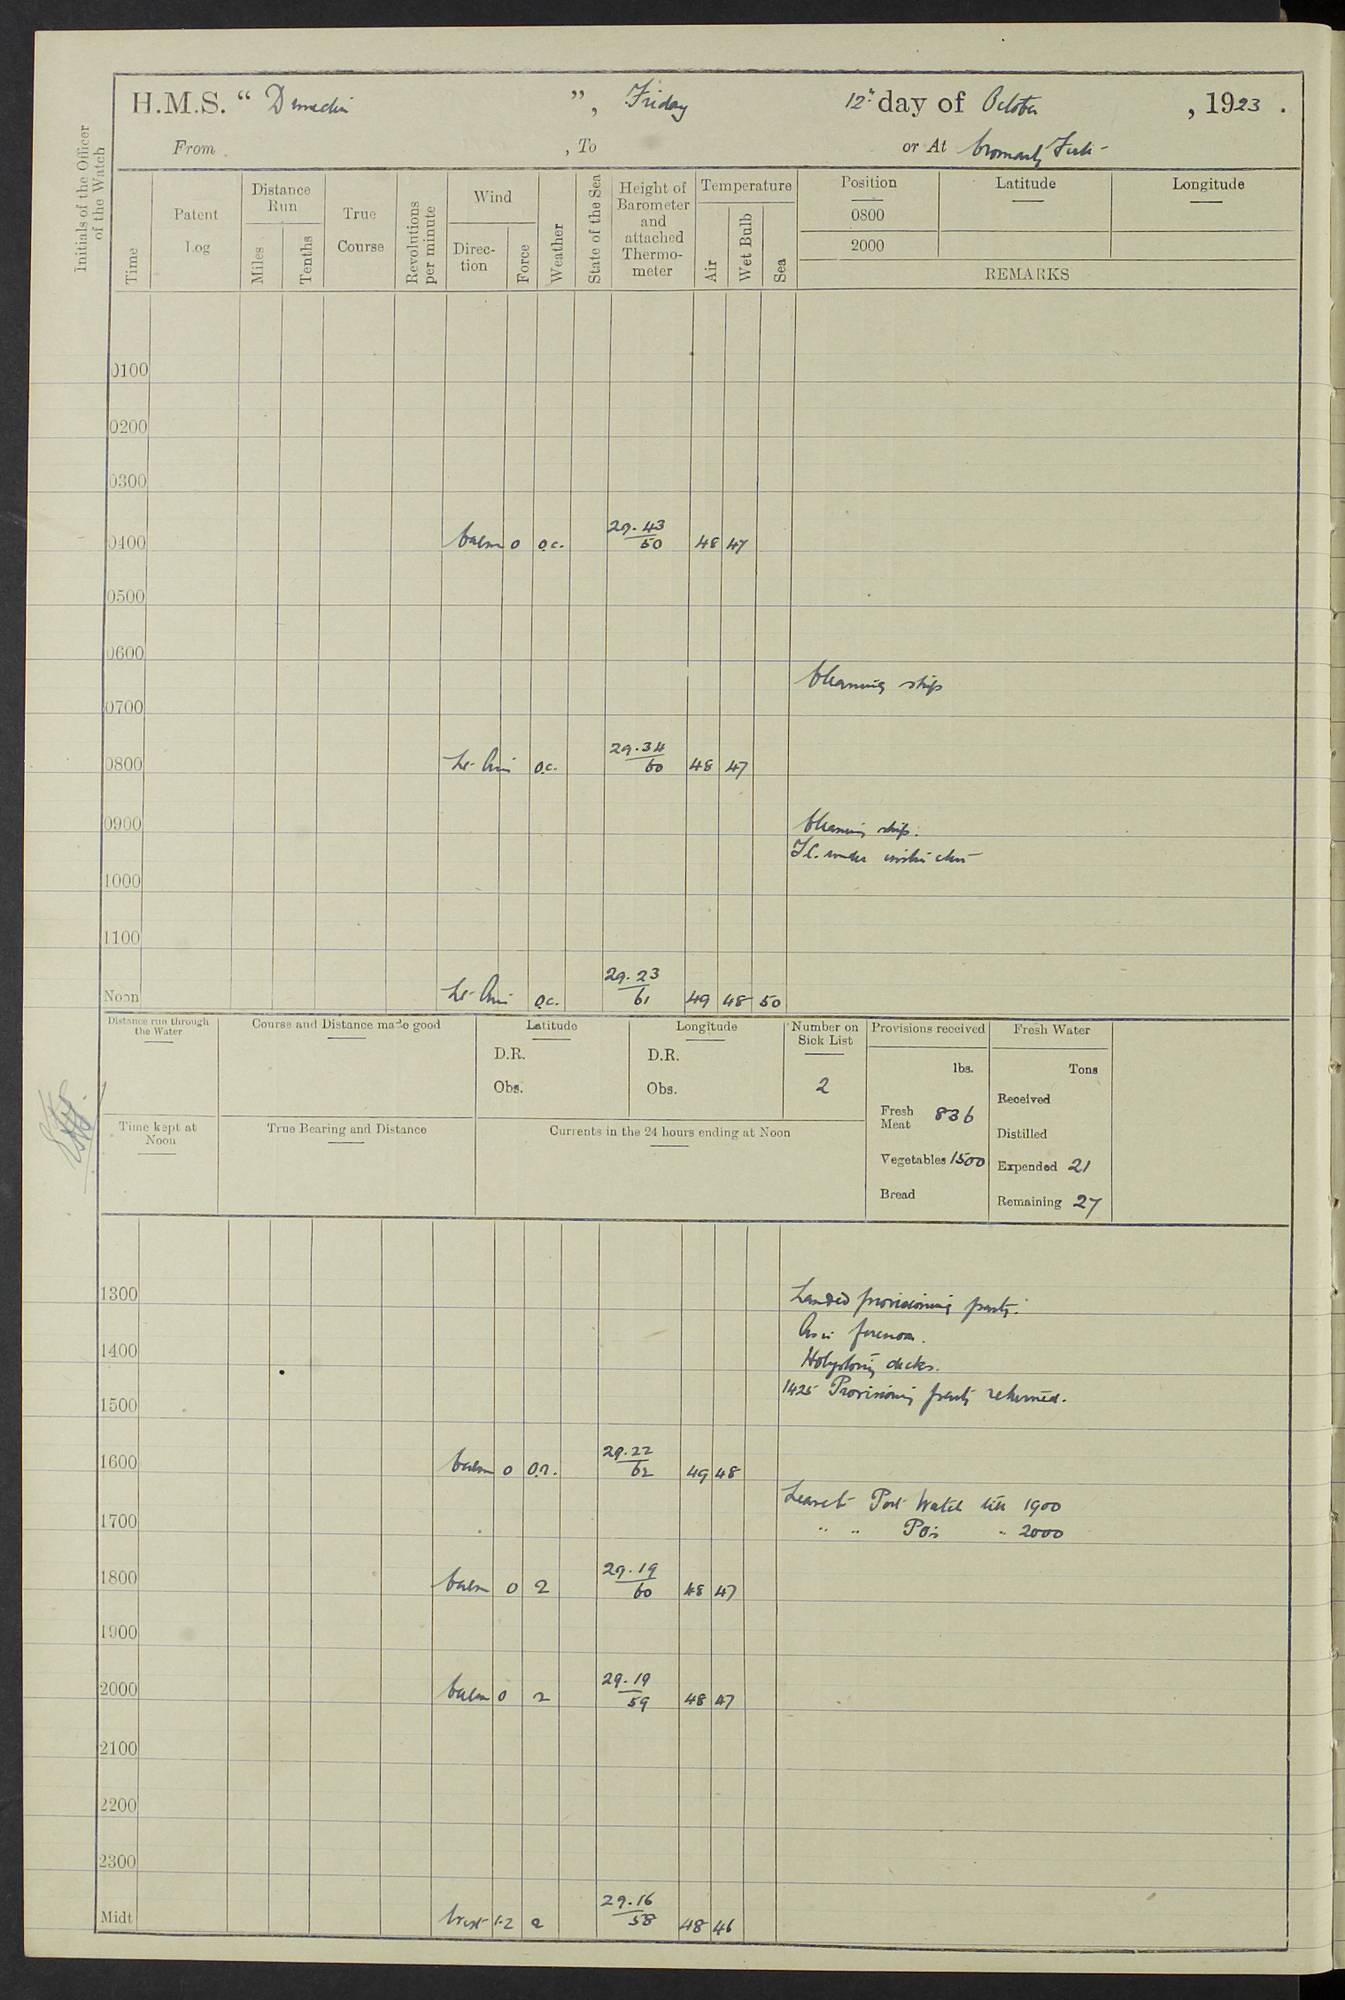 H.M.S. “ Dunedin ”, Friday 12th day of October , 1923 .
From , To or At Cromarty Firth
Initials of the Officer of the Watch
Time
Patent Log
Distance Run
Miles
Tenths
True Course
Revolutions per minute
Wind
Direc-tion
Force
Weather
State of the Sea
Height of Barometer and attached Thermo-meter
Temperature
Air
Wet Bulb
Sea
Position
0800
2000
Latitude
Longitude
REMARKS
0100
0200
0300
0400 Calm 0 o.c. 29.43/50 48 47
0500
0600
Cleaning ship
0700
0800 Lt. Airs o.c. 29.34/60 48 47
0900 Cleaning ship.
under instruction
1000
1100
Noon Lt. Airs o.c. 29.23/61 49 48 50
Distance run through the Water
Course and Distance made good
Latitude
D.R.
Obs.
Longitude
D.R.
Obs.
Number on Sick List
2
Provisions received
lbs.
Fresh Meat 836
Vegetables 1500
Bread
Fresh Water
Tons
Received
Distilled
Expended 21
Remaining 27
Time kept at Noon
True Bearing and Distance
Currents in the 24 hours ending at Noon
1300 Landed provisioning party.
As in forenoon.
1400 Holystoning decks.
1425 Provisioning party returned.
1500
1600 Calm 0 o.r. 29.22/62 49 48
Leave to Port Watch till 1900
1700 " " POs " 2000
1800 Calm 0 29.19/60 48 47
1900
2000 Calm 0 29.19/59 48 47
2100
2200
2300
Midt West 1-2 29.16/58 48 46